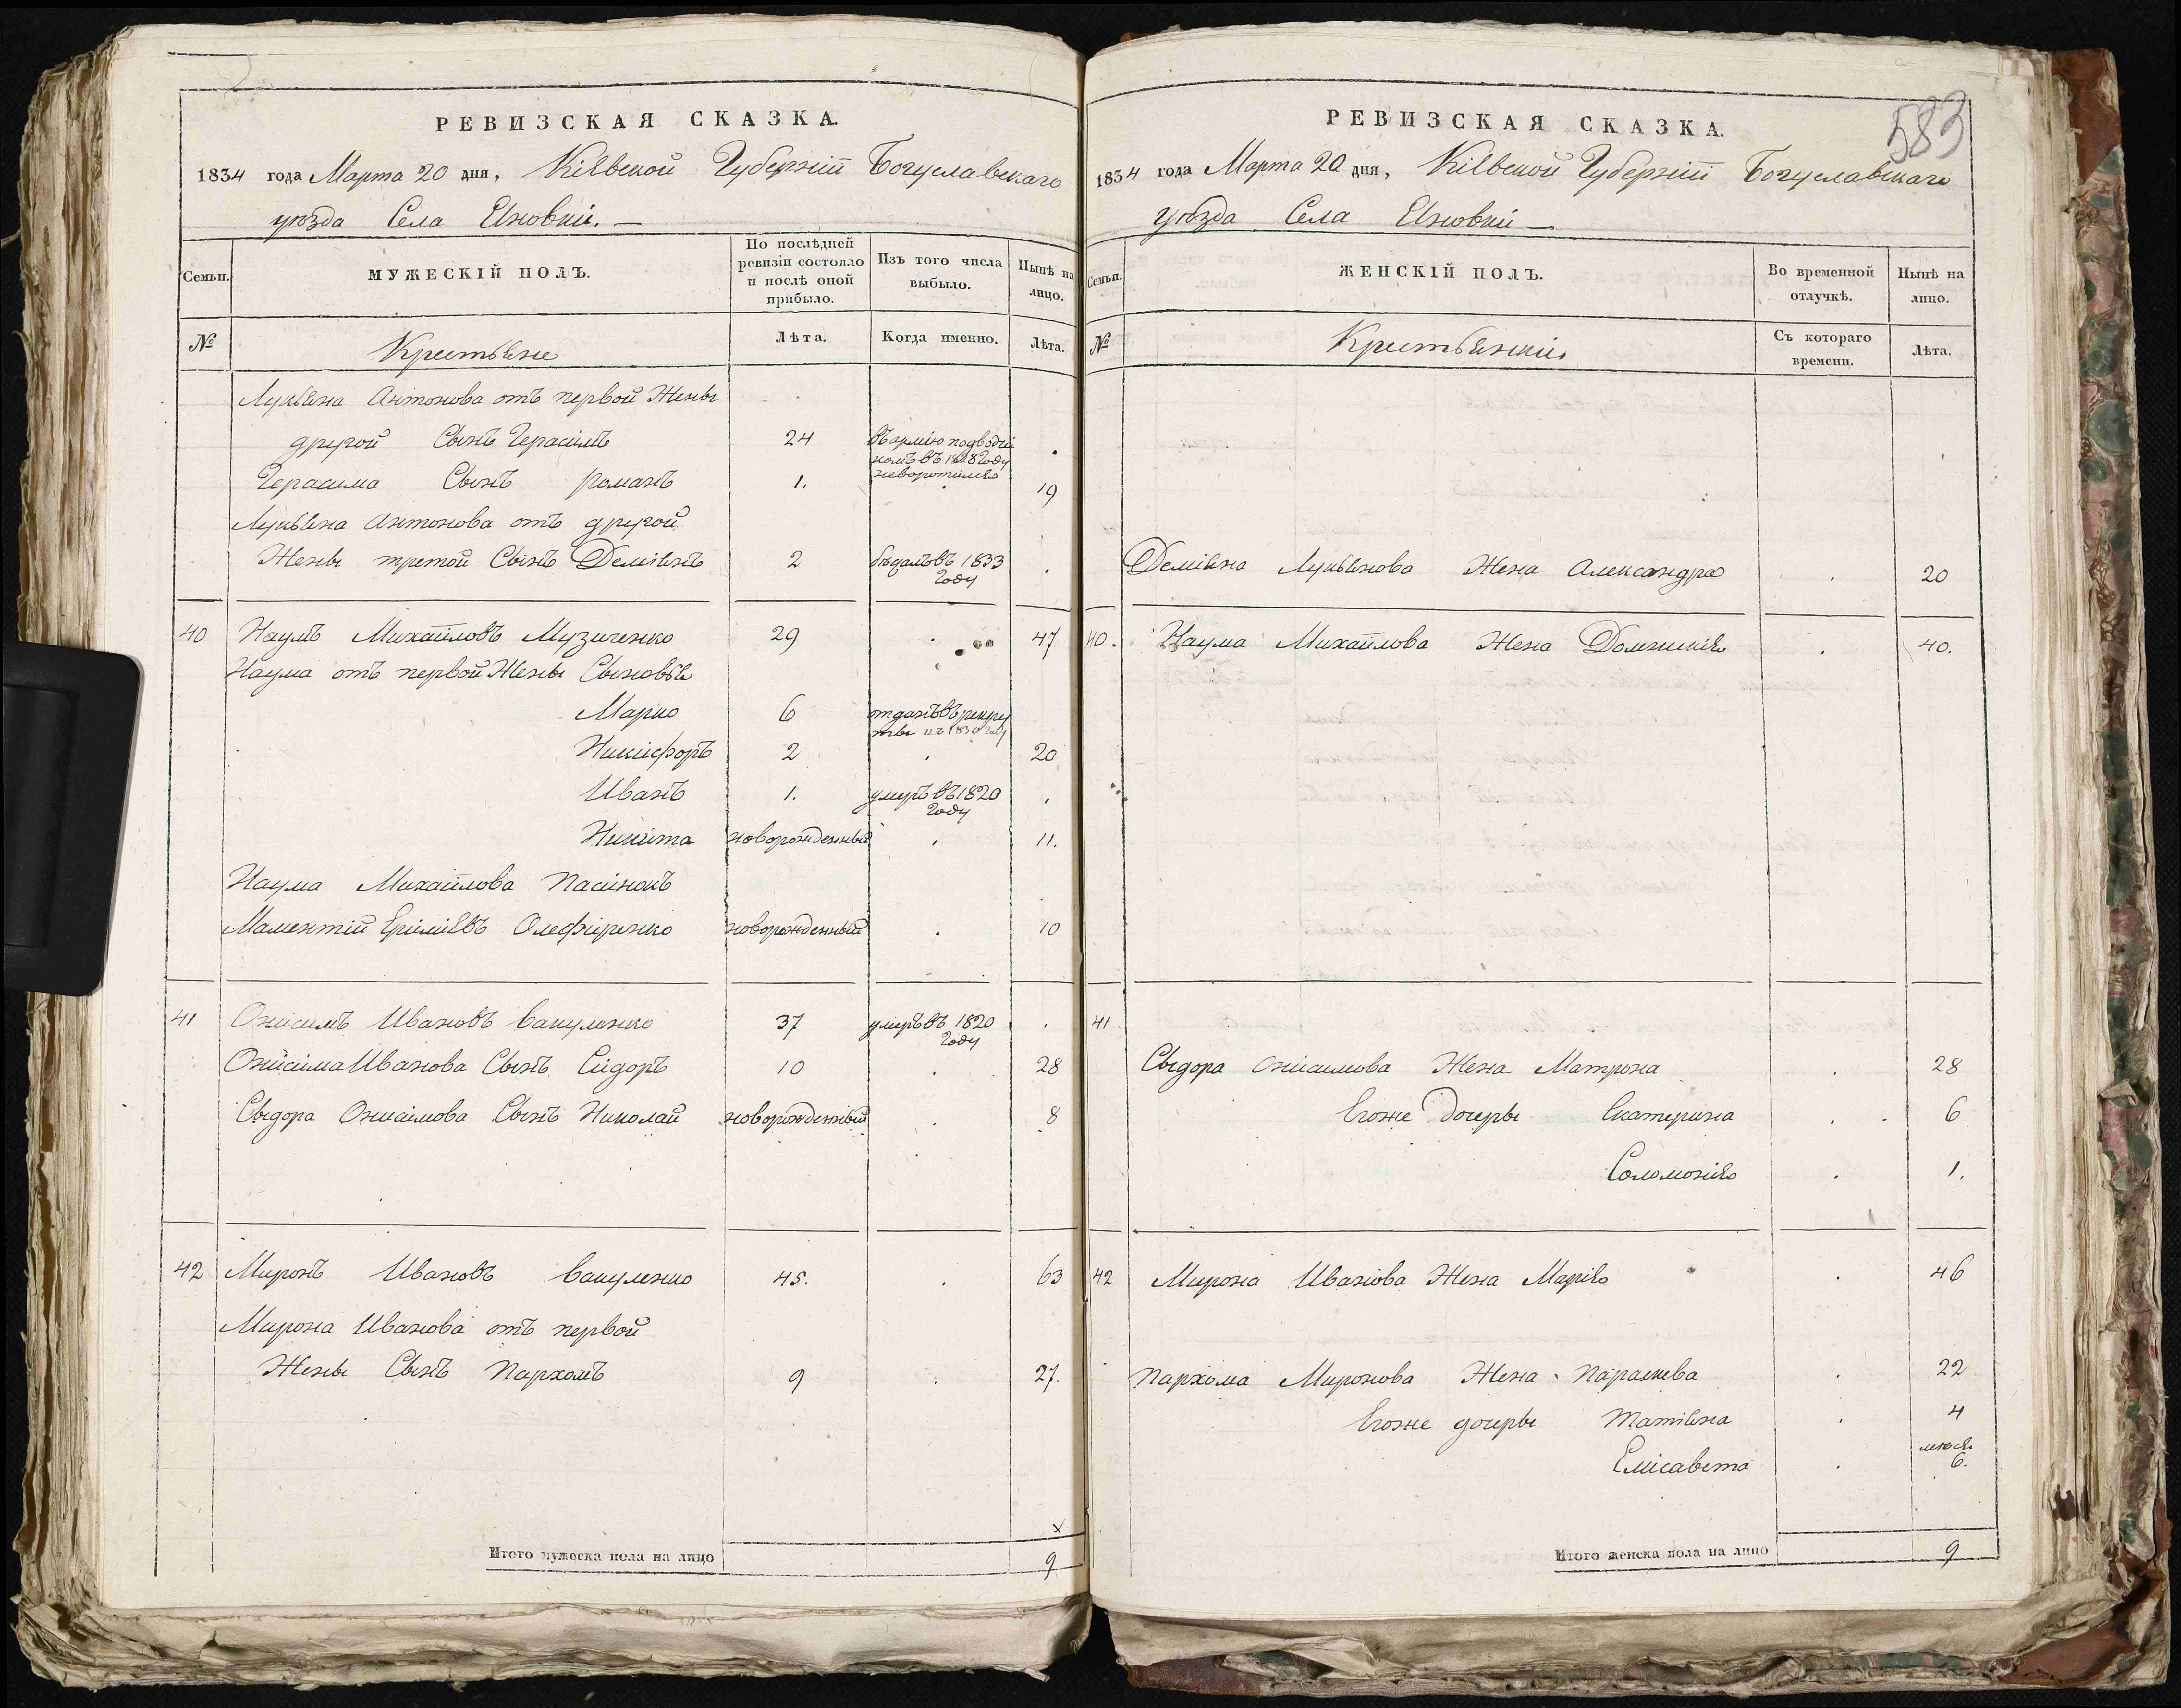 РЕВИЗСКАЯ СКАЗКА.
1834 года Марта 20 дня, Кіевской Губерніи Богуславскаго
уѣзда Села Яновки. —
Семьи.
МУЖЕСКІЙ ПОЛЪ.
По послѣдней ревизіи состояло и послѣ оной прибыло.
Изъ того числа выбыло.
Нынѣ на лицо.
№
Крестьяне
Лѣта.
Когда именно.
Лѣта.
Лукьяна Антонова отъ первой Жены
другой Сынъ Герасимъ 24 въ армію подводчи
комъ въ 1828 Году
неворотился
Герасима Сынъ Романъ 1. 19
Лукьяна Антонова отъ другой
Жены третой Сынъ Деміянъ 2 бежалъ въ 1833
Году
40 Наумъ Михайловъ Музиченко 29 47
Наума отъ первой Жены Сыновья
Марко 6 отданъ въ рекру
ты въ 1830 Году
Никифоръ 2 20
Иванъ 1. умеръ въ 1820
Году
Никита новорожденный 11.
Наума Михайлова Пасинокъ
Маментій Еріміевъ Олефіренко новорожденный 10
41 Онисимъ Ивановъ Вакуленко 37 умеръ въ 1820
Году
Онисима Иванова Сынъ Сидоръ 10 28
Сыдора Онисимова Сынъ Николай новорожденный 8
42 Миронъ Ивановъ Вакуленко 45. 63
Мирона Иванова отъ первой
Жены Сынъ Пархомъ 9 27.
х
Итого мужеска пола на лицо 9
583
РЕВИЗСКАЯ СКАЗКА.
1834 года Марта 20 дня, Кіевской Губерніи Богуславскаго
уѣзда Села Яновки —
Семьи.
ЖЕНСКІЙ ПОЛЪ.
Во временной отлучкѣ.
Нынѣ на лицо.
№
Крестьянки
Съ котораго времени.
Лѣта.
Деміяна Лукьянова Жена Александра 20
40. Наума Михайлова Жена Домникія 40.
41
Сыдора Онисимова Жена Матрона 28
Егоже Дочеры Екатерина 6
Соломонія 1.
42 Мирона Иванова Жена Марія 46
Пархома Миронова Жена Параскева 22
Егоже дочеры Татіяна 4
Елісавета мѣся. 6.
Итого женска пола на лицо 9